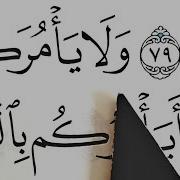 ٧٩ وَلَا يَأْمُرَكُ
أَيَأْمُرُكُم بِٱلْ